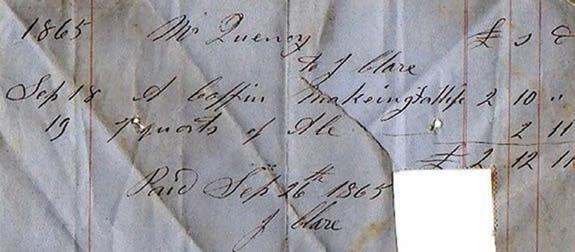 1865 Mr Quency £ s d
To J Clare
Sep 18 A Coffin makeing 2 10 "
19 7 quarts of Ale 2 11
£ 2 12 11
Paid Sep 26th 1865
J Clare